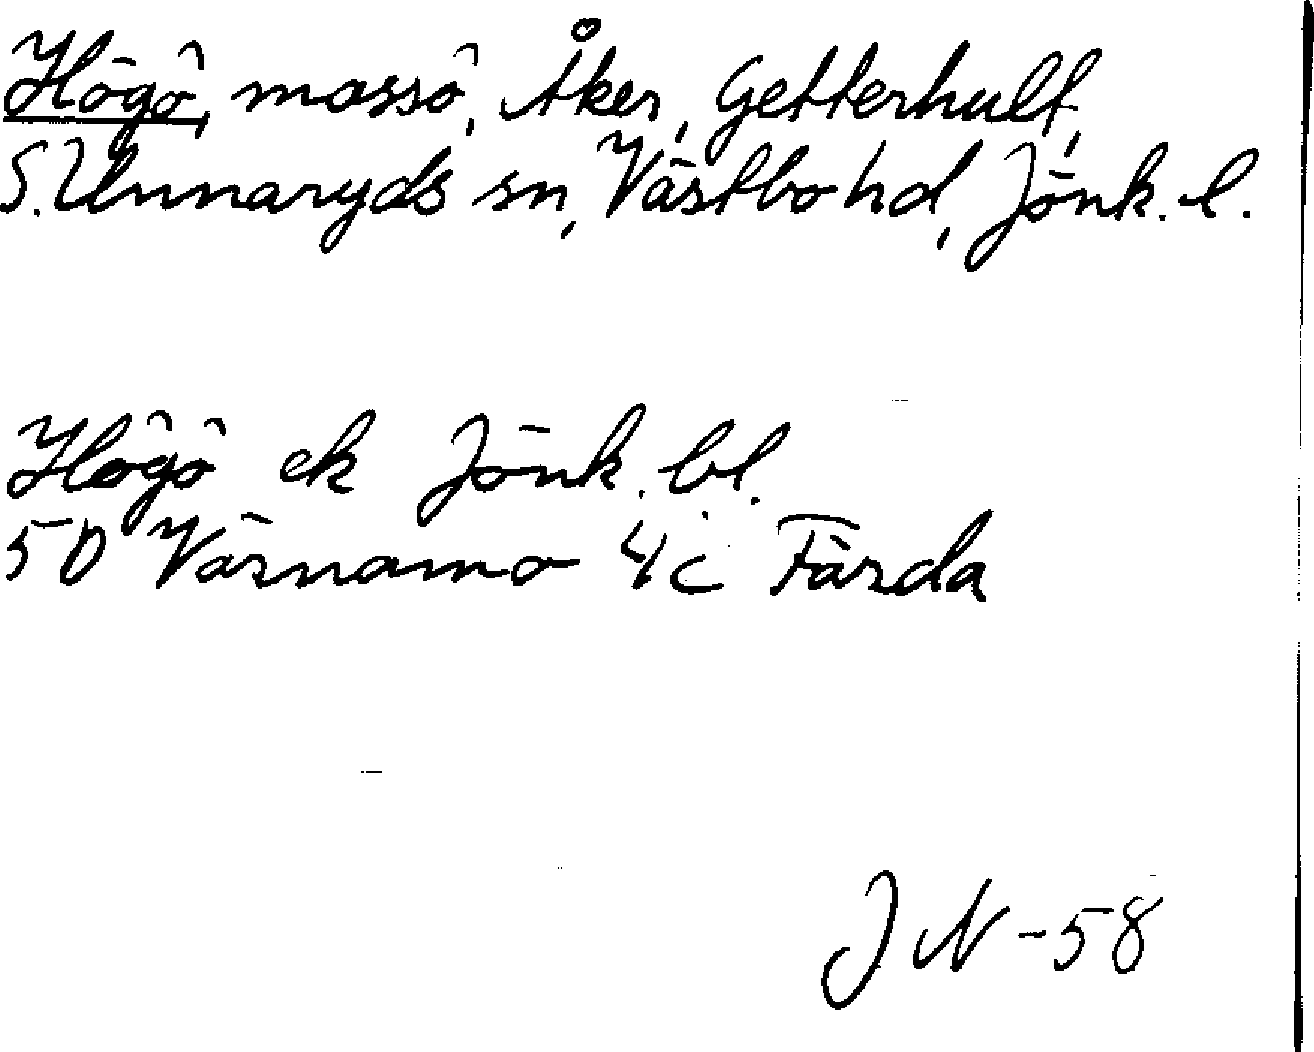 Högö, mossö, Åker, Getterhult,
S. Unnaryds sn, Västbo hd, Jönk. l.
Högö ek Jönk. bl.
5D Värnamo 4c Färda
JN -58